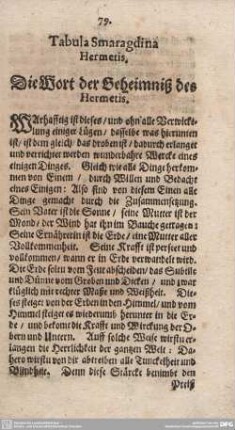 79.
Tabula Smaragdina
Hermetis.
Die Wort der Geheimniß des
Hermetis.
WArhafftig ist dieses / und ohn' alle Verwicke-
lung einiger Lügen / dasselbe was hierunten
ist / ist dem gleich / das droben ist / dadurch erlanget
und verrichtet werden wunderbahre Wercke eines
einigen Dinges. Gleich wie alle Dinge herkom-
men von Einem / durch Willen und Bedacht
eines Einigen: Also sind von diesem Einen alle
Dinge gemacht durch die Zusammensetzung.
Sein Vater ist die Sonne / seine Mutter ist der
Mond / der Wind hat ihn im Bauche getragen:
Seine Ernährerin ist die Erde / eine Mutter aller
Vollkommenheit. Seine Krafft ist perfect und
vollkommen / wann er in Erde verwandelt wird.
Die Erde solt u vom Feur abscheiden / das Subtile
und Dünne vom Groben und Dicken / und zwar
klüglich mit rechter Maße und Weißheit. Die-
ses steiget von der Erden in den Himmel / und vom
Himmel steiget es wiederumb herunter in die Er-
de / und bekomt die Krafft und Wirckung der O-
bern und Untern. Auff solche Weise wirstu er-
langen die Herrlichkeit der gantzen Welt: Da-
hero wirstu von dir abtreiben alle Tunckelheit und
Blindheit. Denn diese Stärcke benimbt den
Preiß